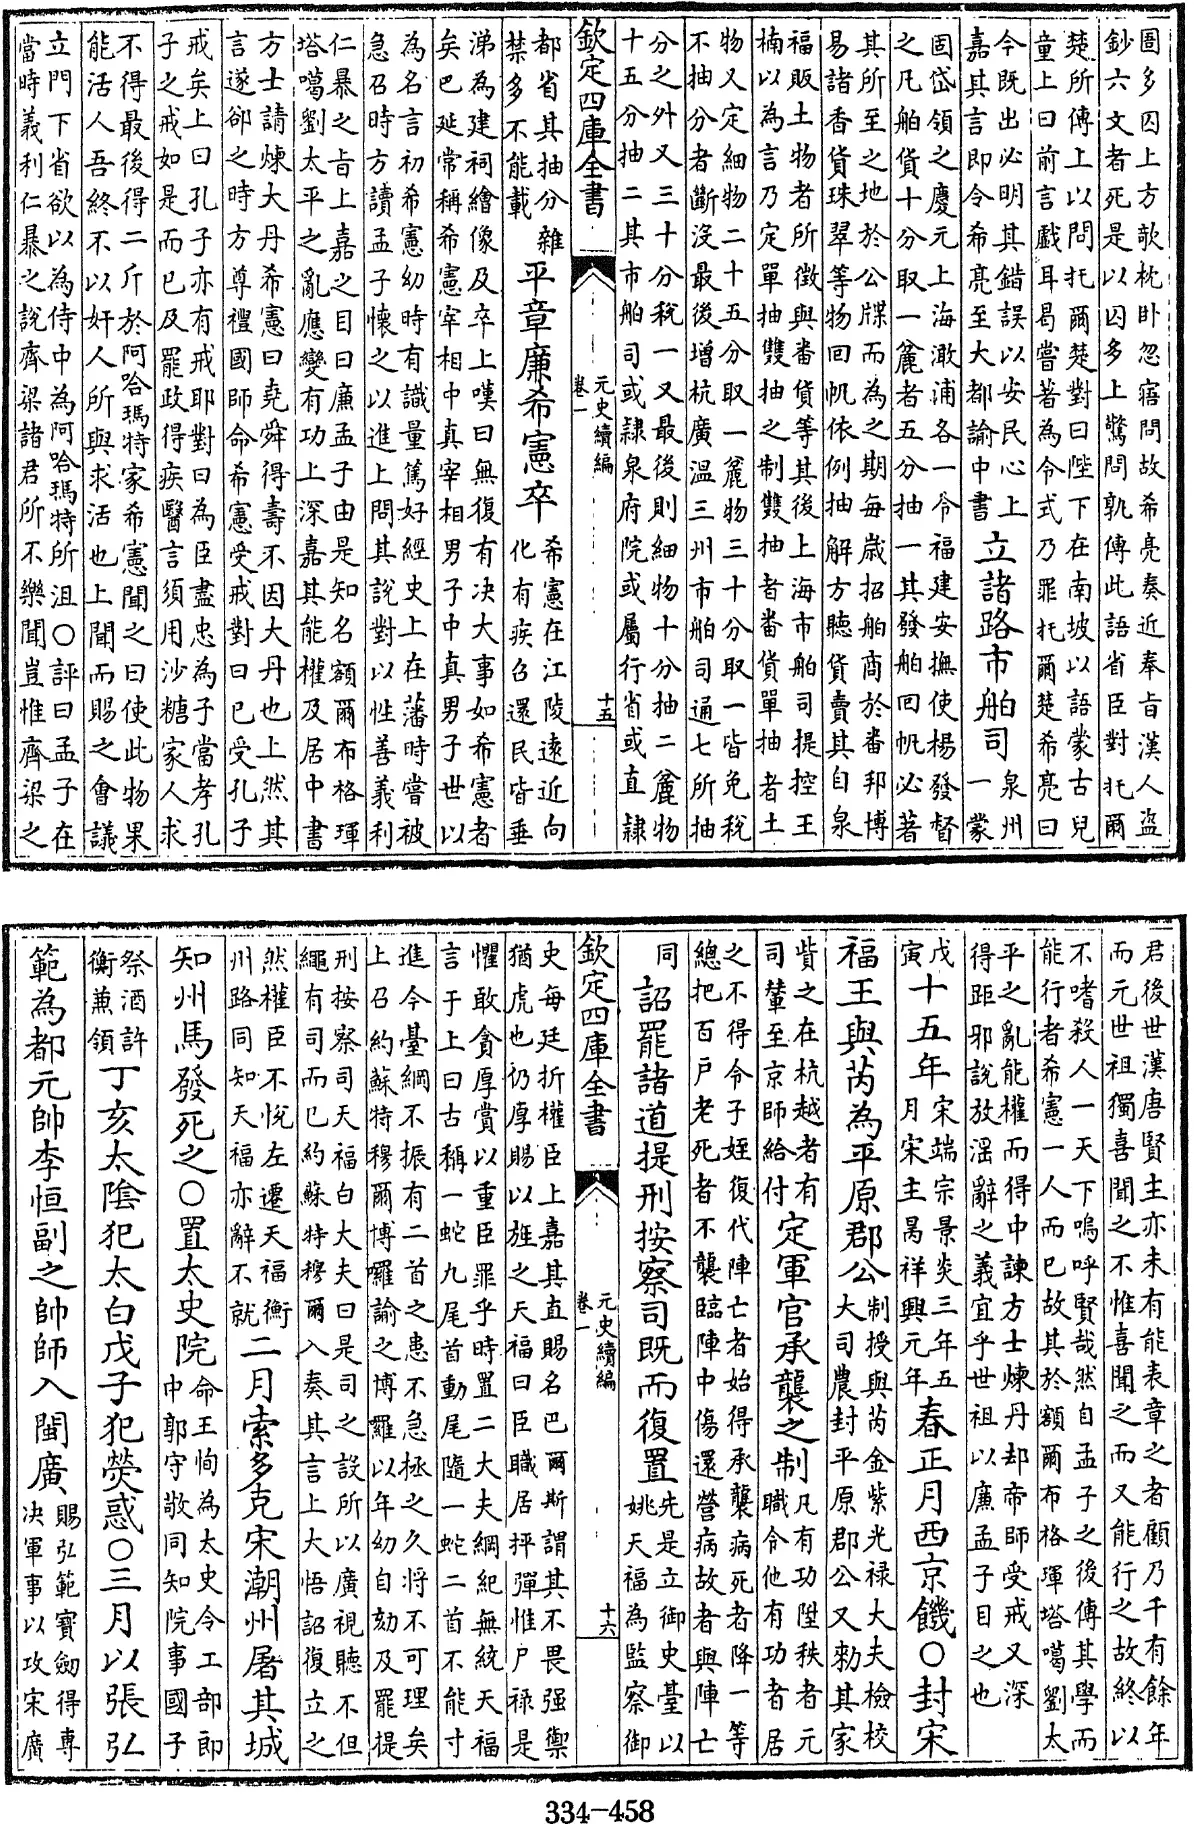 圄多囚上方欹枕卧忽寤問故希亮奏近奉旨漢人盗
鈔六文者死是以囚多上驚問孰傳此語省臣對托爾
楚所傳上以問托爾楚對曰陛下在南坡以語蒙古兒
童上曰前言戲耳曷嘗著為令式乃罪托爾楚希亮曰
今既出必明其錯誤以安民心上
嘉其言即令希亮至大都諭中書
立諸路市舶司
泉州
一蒙
固岱領之慶元上海澉浦各一令福建安撫使楊發督
之凡舶貨十分取一麄者五分抽一其發舶回帆必著
其所至之地於公牒而為之期每歳招舶商於番邦博
易諸香貨珠翠等物回帆依例抽解方聽貨賣其自泉
福販土物者所徵與番貨等其後上海市舶司提控王
楠以為言乃定單抽雙抽之制雙抽者番貨單抽者土
物又定細物二十五分取一麄物三十分取一皆免稅
不抽分者斷沒最後增杭廣溫三州市舶司通七所抽
分之外又三十分稅一又最後則細物十分抽二麄物
十五分抽二其市舶司或隸泉府院或屬行省或直隸
欽定四庫全書
元史續編
卷一
十五
都省其抽分雜
禁多不能載
平章廉希憲卒
希憲在江陵遠近向
化有疾召還民皆垂
涕為建祠繪像及卒上嘆曰無復有決大事如希憲者
矣巴延常稱希憲宰相中真宰相男子中真男子世以
為名言初希憲幼時有識量篤好經史上在藩時嘗被
急召時方讀孟子懷之以進上問其說對以性善義利
仁暴之旨上嘉之目曰廉孟子由是知名額爾布格琿
塔噶劉太平之亂應變有功上深嘉其能權及居中書
方士請煉大丹希憲曰堯舜得壽不因大丹也上然其
言遂卻之時方尊禮國師命希憲受戒對曰已受孔子
戒矣上曰孔子亦有戒耶對曰為臣盡忠為子當孝孔
子之戒如是而已及罷政得疾醫言須用沙糖家人求
不得最後得二斤於阿哈瑪特家希憲聞之曰使此物果
能活人吾終不以奸人所與求活也上聞而賜之會議
立門下省欲以為侍中為阿哈瑪特所沮○評曰孟子在
當時義利仁暴之說齊梁諸君所不樂聞豈惟齊梁之
君後世漢唐賢主亦未有能表章之者顧乃千有餘年
而元世祖獨喜聞之不惟喜聞之而又能行之故終以
不嗜殺人一天下嗚呼賢哉然自孟子之後傳其學而
能行者希憲一人而已故其於額爾布格琿塔噶劉太
平之亂能權而得中諫方士煉丹却帝師受戒又深
得距邪說放淫辭之義宜乎世祖以廉孟子目之也
戊
寅
十五年
宋端宗景炎三年五
月宋主昺祥興元年
春正月西京饑○封宋
福王與芮為平原郡公
制授與芮金紫光禄大夫檢校
大司農封平原郡公又勅其家
貲之在杭越者有
司輦至京師給付
定軍官承襲之制
凡有功陞秩者元
職令他有功者居
之不得令子姪復代陣亡者始得承襲病死者降一等
總把百戶老死者不襲臨陣中傷還營病故者與陣亡
同
詔罷諸道提刑按察司既而復置
先是立御史臺以
姚天福為監察御
欽定四庫全書
元史續編
卷一
十六
史每廷折權臣上嘉其直賜名巴爾斯謂其不畏强禦
猶虎也仍厚賜以旌之天福曰臣職居抨彈惟户禄是
懼敢貪厚賞以重臣罪乎時置二大夫綱紀無統天福
言于上曰古稱一蛇九尾首動尾隨一蛇二首不能寸
進今臺綱不振有二首之患不急拯之久將不可理矣
上召約蘇特穆爾博囉諭之博囉以年幼自劾及罷提
刑按察司天福白大夫曰是司之設所以廣視聽不但
繩有司而已約蘇特穆爾入奏其言上大悟詔復立之
然權臣不悅左遷天福衡
州路同知天福亦辭不就
二月索多克宋潮州屠其城
知州馬發死之○置太史院
命王恂為太史令工部郎
中郭守敬同知院事國子
祭酒許
衡兼領
丁亥太陰犯太白戊子犯熒惑○三月以張弘
範為都元帥李恒副之帥師入閩廣
賜弘範寶劒得專
决軍事以攻宋廣
334-458